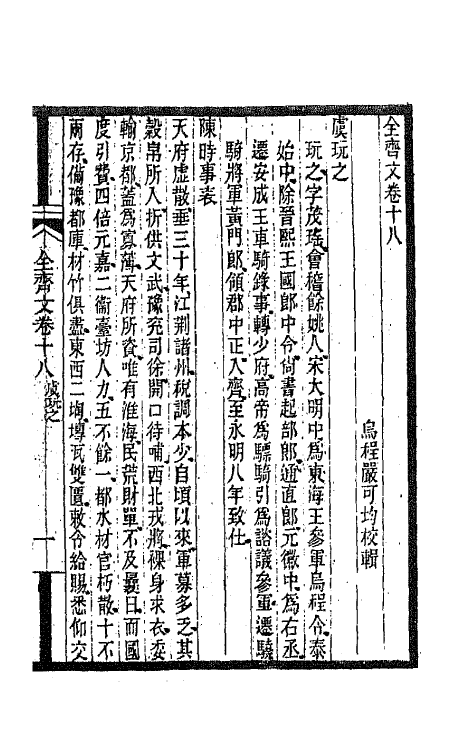 全齊文卷十八
烏程嚴可均校輯
虞玩之
玩之字茂瑤會稽餘姚人宋大明中為東海王參軍烏程令泰
始中除晉熙王國郎中令尚書起部郎通直郎元徽中為右丞
遷安成王車騎錄事轉少府高帝為驃騎引為諮議參軍遷驍
騎將軍黃門郎領郡中正入齊至永明八年致仕
陳時事表
天府虛散垂三十年江荆諸州稅調本少自頃以來軍募多乏其
穀帛所入折供文武豫兗司徐開口待哺西北戎將裸身求衣委
輸京都蓋為寡薄天府所資唯有淮海民荒財單不及曩日而國
度引費四倍元嘉二衞臺坊人力五不餘一都水材官朽散十不
兩存備豫都庫材竹俱盡東西二堈塼瓦雙匱敕令給賜悉仰交
全齊文卷十八 虞玩之 一